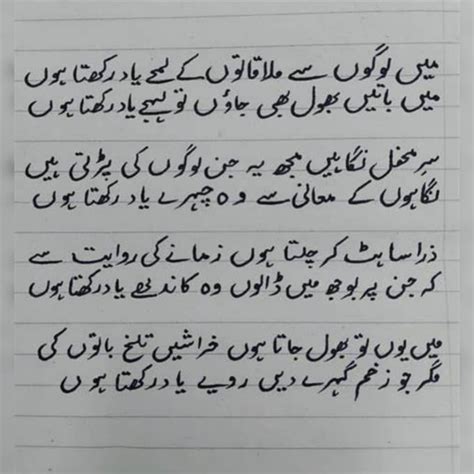 میں لوگوں سے ملاقاتوں کے لمحے یاد رکھتا ہوں
میں باتیں بھول بھی جاؤں تو لہجے یاد رکھتا ہوں
سرِ محفل نگاہیں مجھ پہ جن لوگوں کی پڑتی ہیں
نگاہوں کے معانی سے وہ چہرے یاد رکھتا ہوں
ذرا سا ہٹ کر چلتا ہوں زمانے کی روایت سے
کہ جن پر بوجھ میں ڈالوں وہ کاندھے یاد رکھتا ہوں
میں یوں تو بھول جاتا ہوں خراشیں تلخ باتوں کی
مگر جو زخم گہرے دیں رویے یاد رکھتا ہوں